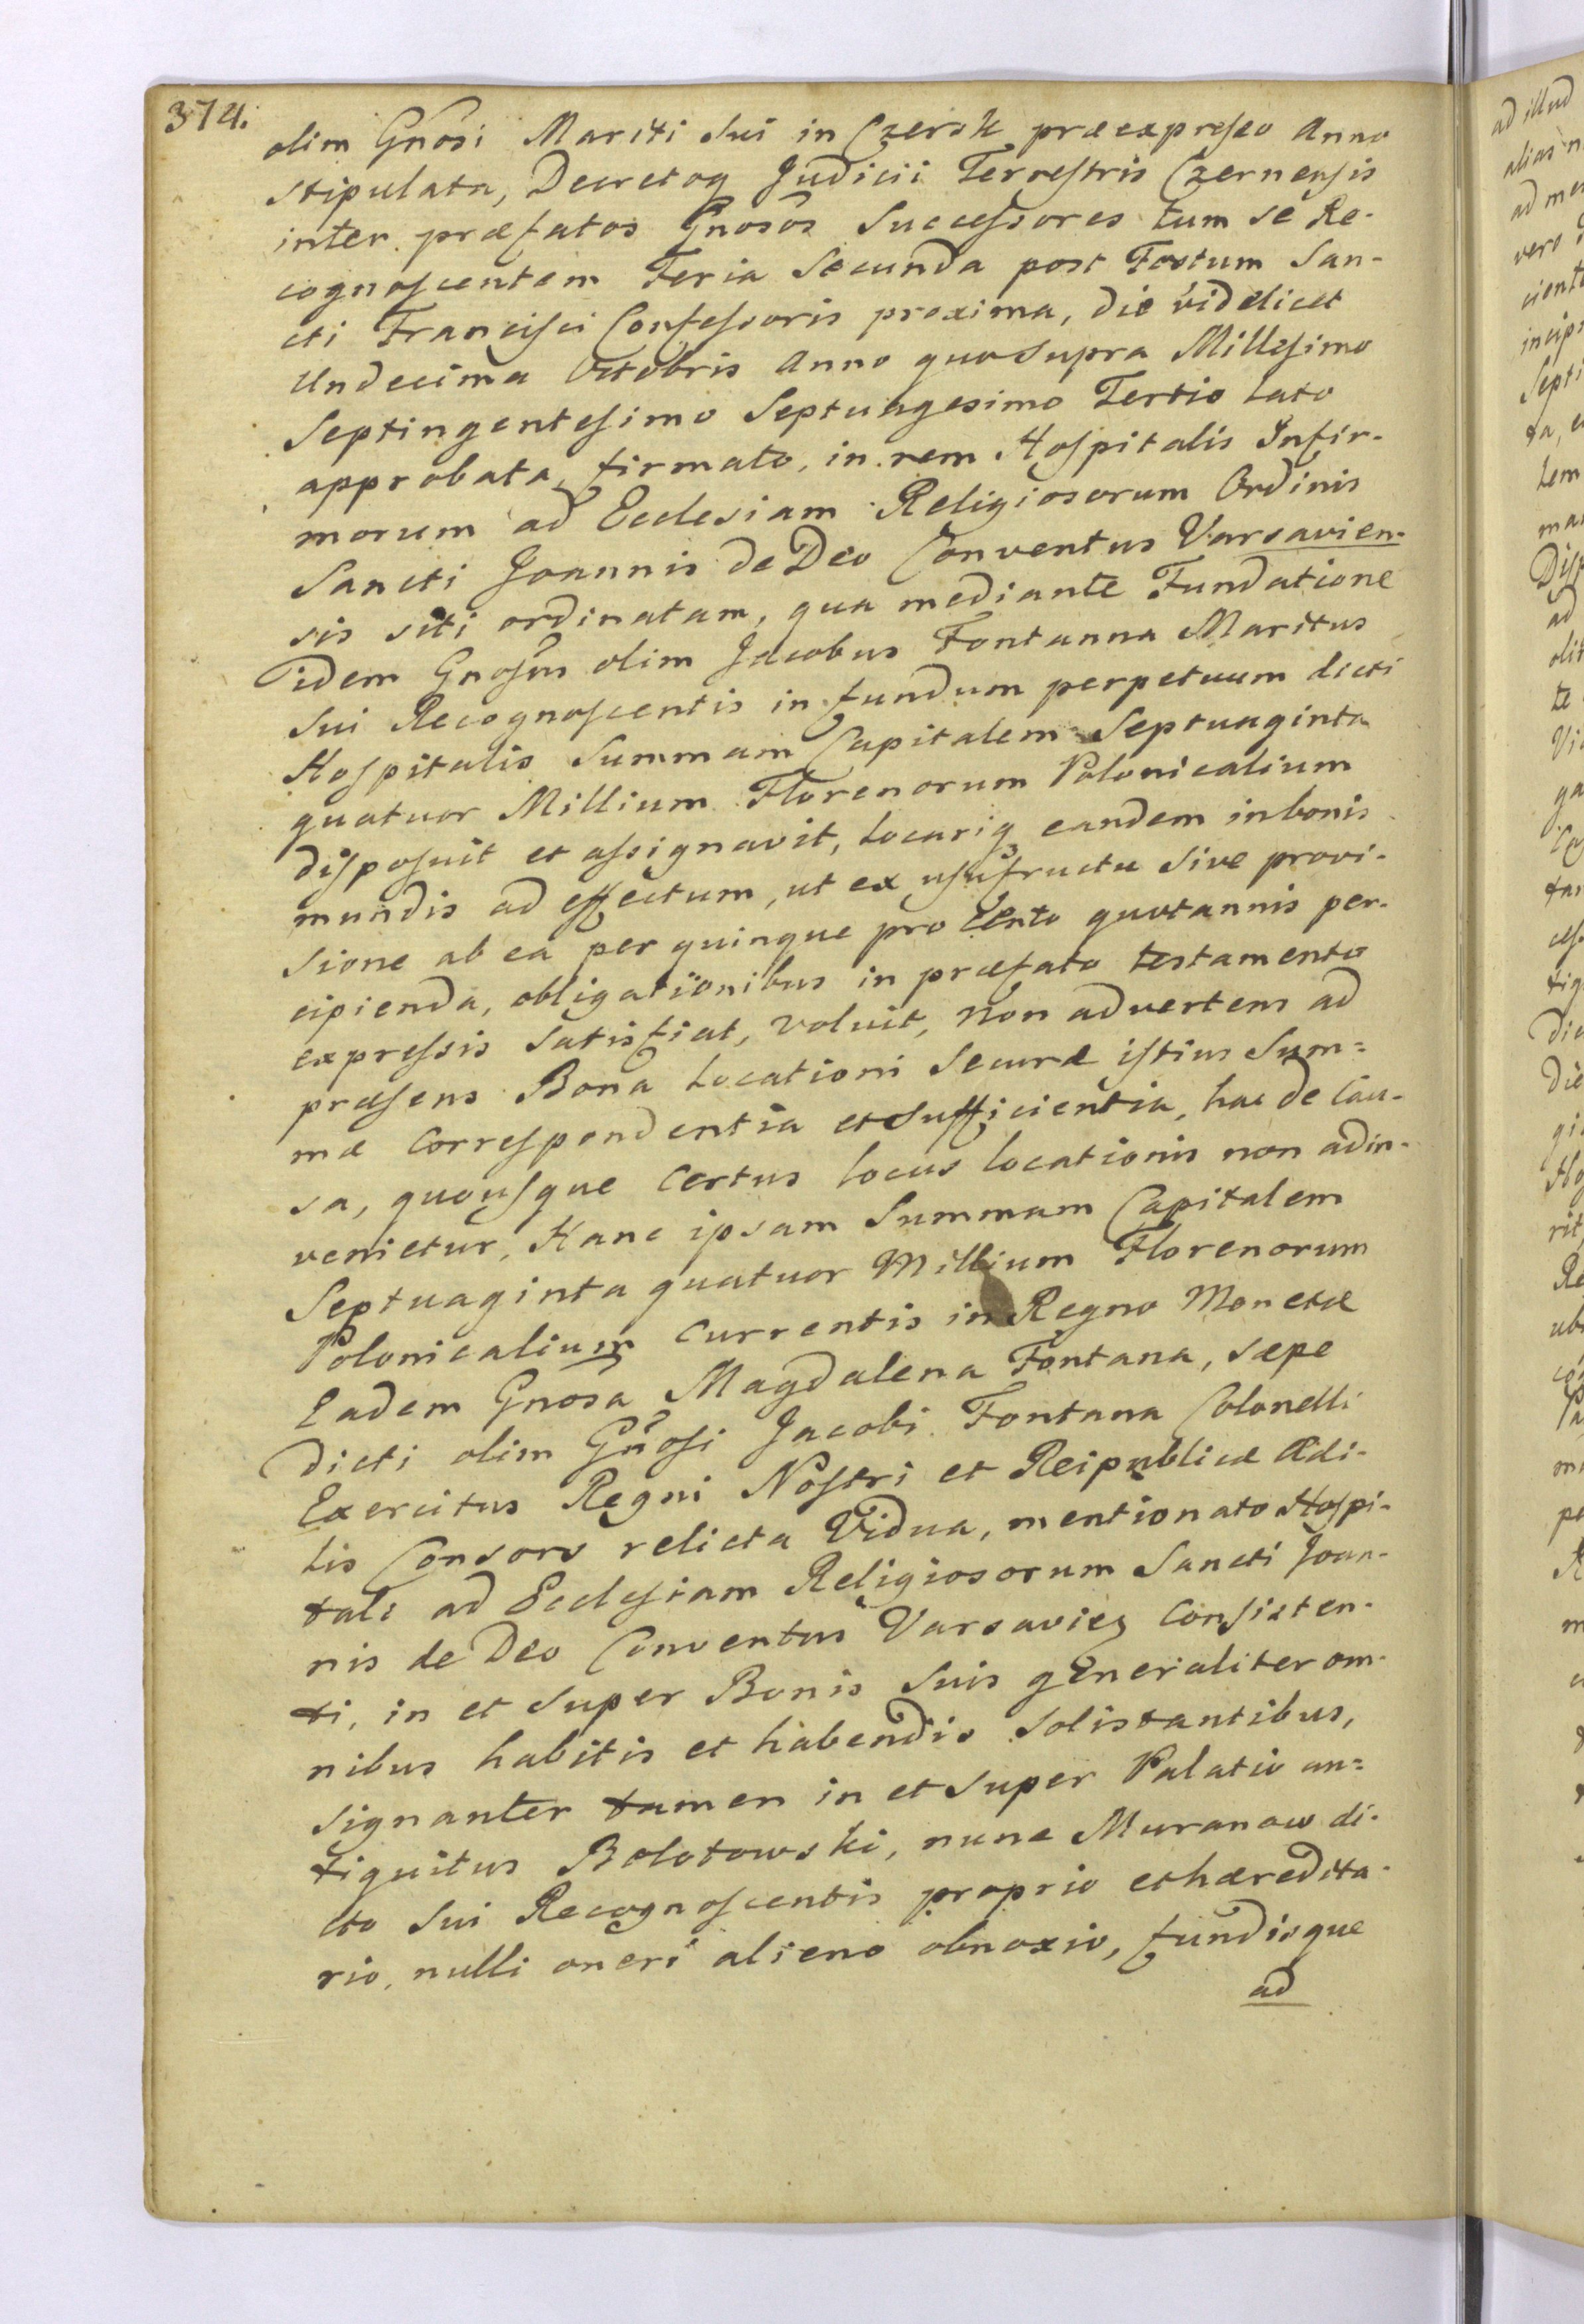 374.
olim Gnosi Mariti Sui in Czersk præexpresso Anno
stipulata, Decretoq Judicii Terrestris Czernensis
inter præfatos Gnosos Successores tum se Re-
cognoscentem Feria Secunda post Festum San-
cti Francisci Confessoris proxima, die videlicet
Undecima Octobris Anno quo supra Millesimo
Septingentesimo Septuagesimo Tertio lato
approbata, firmato, in rem Hospitalis Infir-
morum ad Ecclesiam Religiosorum Ordinis
Sancti Joannis de Deo Conventus Varsavien-
sis siti ordinatam, qua mediante Fundatione
idem Gnosus olim Jacobus Fontanna Maritus
Sui Recognoscentis in fundum perpetuum dicti
Hospitalis Summam Capitalem Septuaginta
quatuor Millium Florenorum Polonicalium
disposuit et assignavit, locariq eandem in bonis
mundis ad effectum, ut ex usufructu sive provi-
sione ab ea per quinque pro Cento quotannis per-
cipienda, obligationibus in præfato testamento
expressis satisfiat, voluit, non advertens ad
præsens Bona locationi Securæ istius Sum=
mæ correspondentia et sufficientia, hac de Cau-
sa, quousque certus locus locationis non adin-
venietur, Hanc ipsam Summam Capitalem
Septuaginta quatuor Millium Florenorum
Polonicalium currentis in Regno Monetæ
Eadem Gnosa Magdalena Fontana, sæpe
dicti olim Gnosi Jacobi Fontana Colonelli
Exercitus Regni Nostri et Reipublicæ Ædi-
lis Consors relicta Vidua, mentionato Hospi-
tali ad Ecclesiam Religiosorum Sancti Joan-
nis de Deo Conventus Varsavien consisten-
ti, in et super Bonis Suis generaliter om-
nibus habitis et habendis solistantibus,
signanter tamen in et super Palatio an=
tiquitus Bolotowski, nunc Muranow di-
cto Sui Recognoscentis proprio et hæredita-
rio, nulli oneri alieno obnoxio, fundisque
ad
ad illud
alias
vero